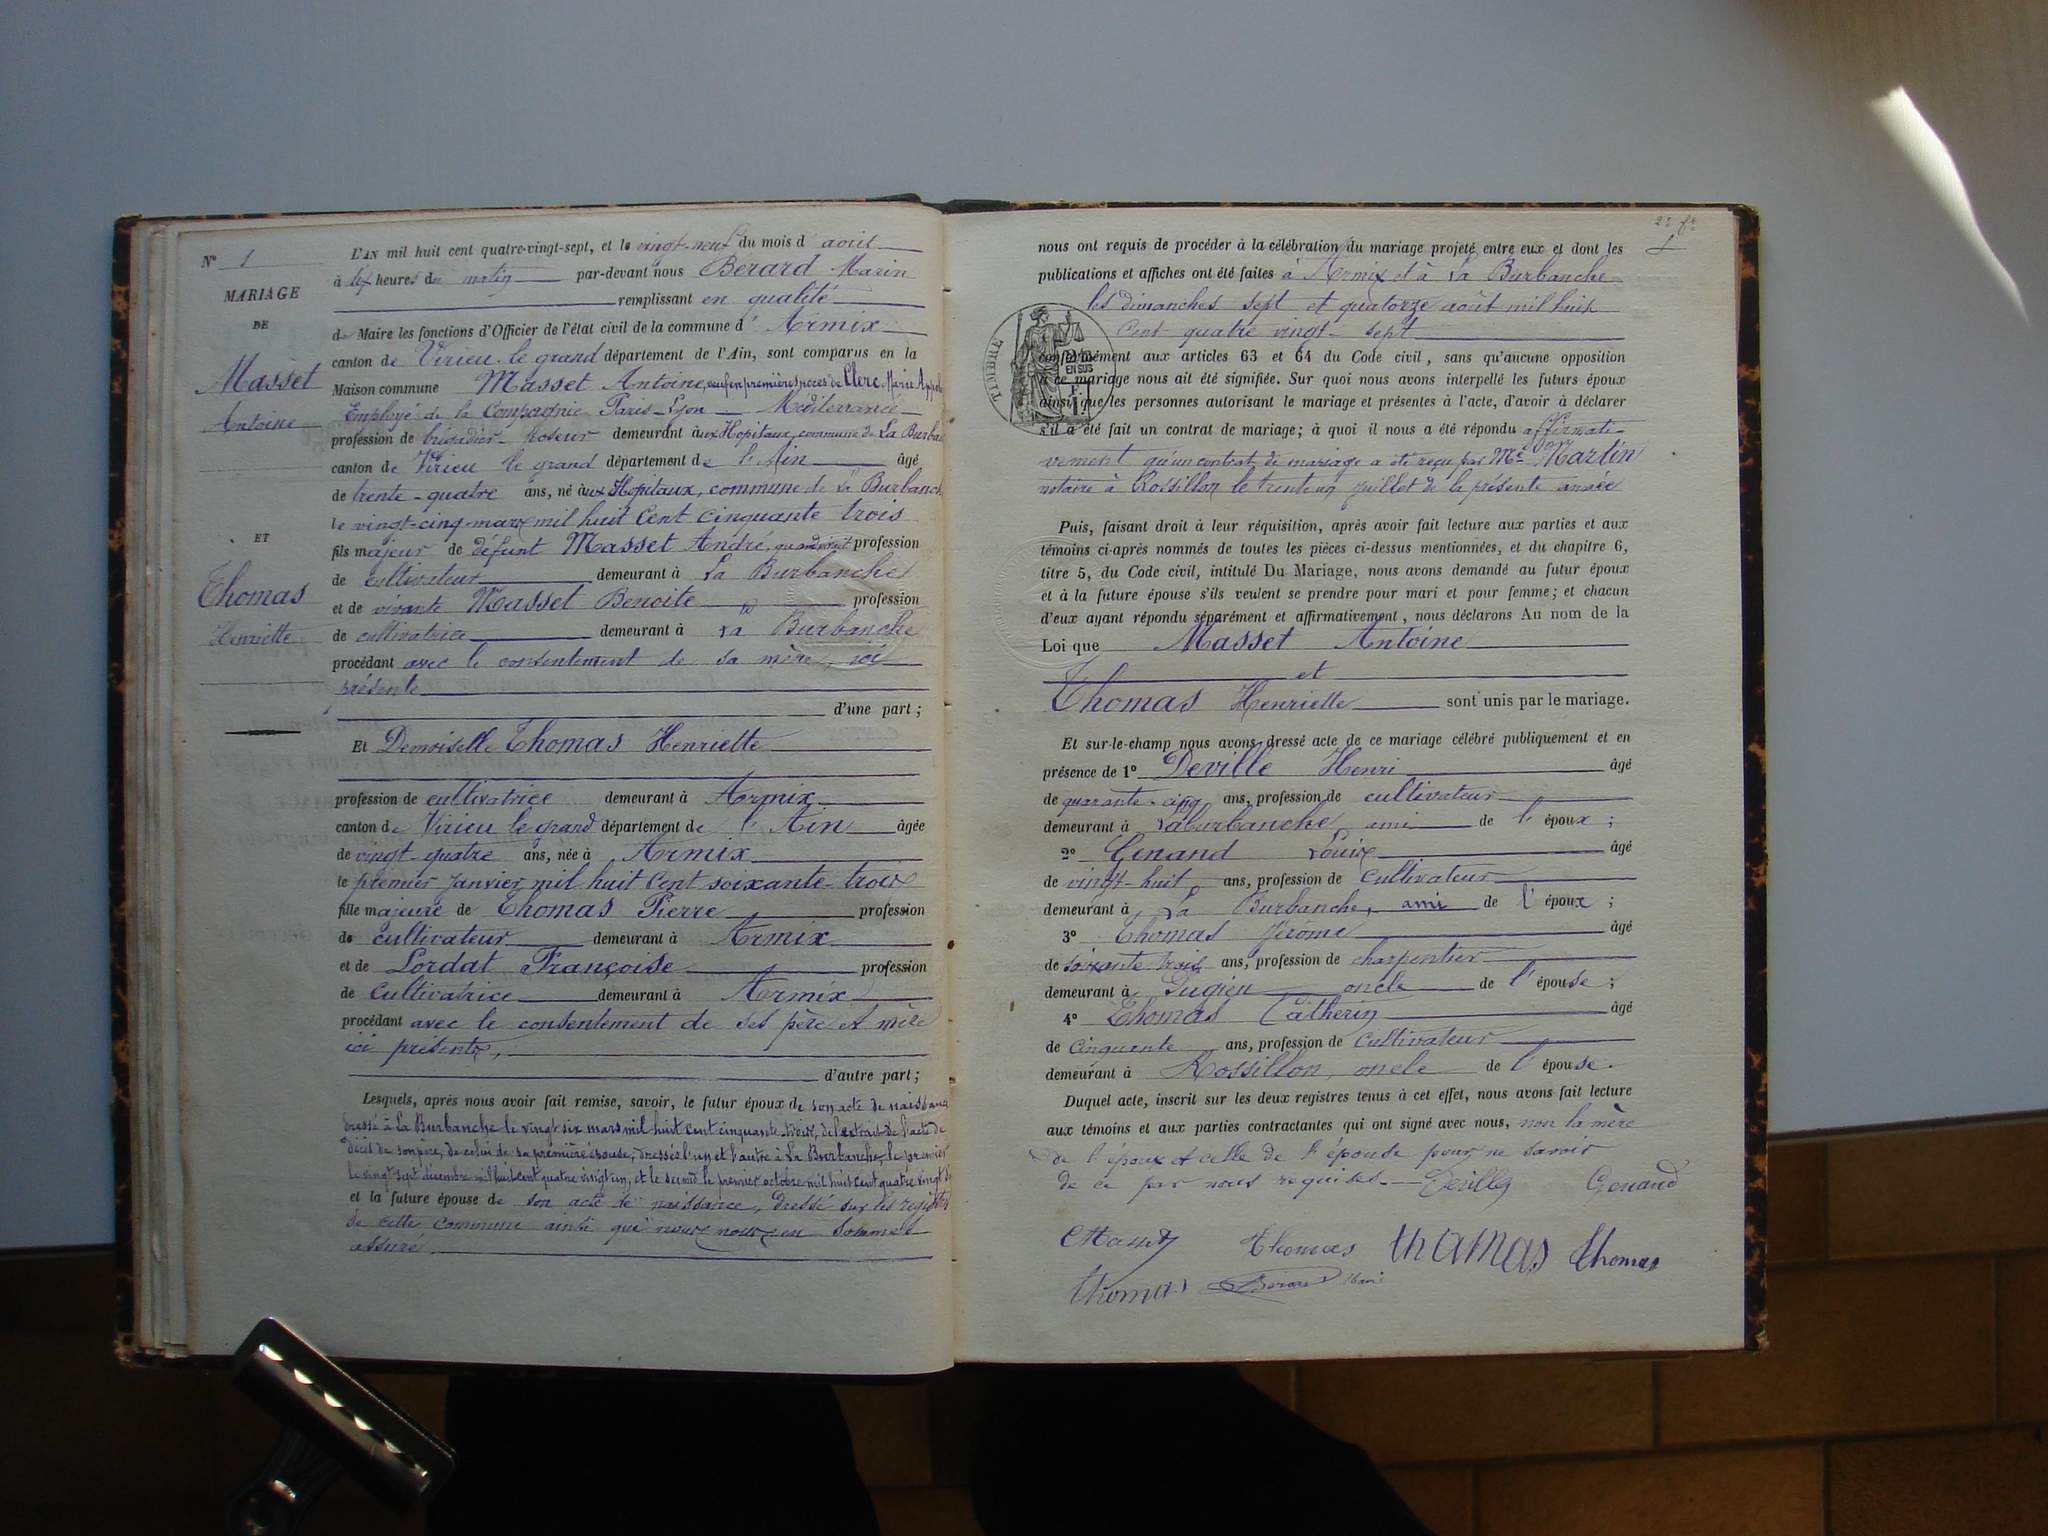 N° 1
MARIAGE
DE
Masset
Antoine
ET
Thomas
Henriette
L'AN mil huit cent quatre-vingt-sept, et le vingt-neuf du mois d août
à dix heures du matin par-devant nous Berard Marin
remplissant en qualité
de Maire les fonctions d'Officier de l'état civil de la commune d' Armix
canton de Virieu le grand département de l'Ain, sont comparus en la
Maison commune Masset Antoine, veuf en premières noces de Clerc Marie
Employé de la Compagnie Paris-Lyon-Méditerranée
profession de brigadier-poseur demeurant aux Hopitaux, commune de La Burban
canton de Virieu le grand département de l'Ain âgé
de trente-quatre ans, né aux Hopitaux, commune de La Burbanch
le vingt-cinq mars mil huit Cent cinquante trois
fils majeur de défunt Masset André, quand vivait profession
de cultivateur demeurant à La Burbanche
et de vivante Masset Benoite profession
de cultivatrice demeurant à La Burbanche
procédant avec le consentement de sa mère, ici
présente
d'une part ;
Et Demoiselle Thomas Henriette
profession de cultivatrice demeurant à Armix
canton de Virieu le grand département de l'Ain âgée
de vingt-quatre ans, née à Armix
le premier Janvier mil huit Cent soixante-trois
fille majeure de Thomas Pierre profession
de cultivateur demeurant à Armix
et de Lordat Françoise profession
de Cultivatrice demeurant à Armix
procédant avec le consentement de ses père et mère
ici présents,
d'autre part ;
Lesquels, après nous avoir fait remise, savoir, le futur époux de son acte de naissance
dressé à La Burbanche le vingt six mars mil huit cent cinquante trois, de l'extrait de l'acte de
décès de son père, de celui de sa première épouse, dressés l'un et l'autre à La Burbanche, le premier
le vingt sept décembre mil huit cent quatre vingt un, et le second le premier octobre mil huit cent quatre vingt
et la future épouse de son acte de naissance, dressé sur les registres
de cette commune ainsi que nous nous en sommes
assuré.
nous ont requis de procéder à la célébration du mariage projeté entre eux et dont les
publications et affiches ont été faites à Armix et à La Burbanche
les dimanches sept et quatorze août mil huit
Cent quatre vingt-sept
TIMBRE
2/10
EN SUS
conformément aux articles 63 et 64 du Code civil, sans qu'aucune opposition
à ce mariage nous ait été signifiée. Sur quoi nous avons interpellé les futurs époux
ainsi que les personnes autorisant le mariage et présentes à l'acte, d'avoir à déclarer
s'il a été fait un contrat de mariage ; à quoi il nous a été répondu affirmati-
vement qu'un contrat de mariage a été reçu par Me Martin
notaire à Rossillon le trente un juillet de la présente année
Puis, faisant droit à leur réquisition, après avoir fait lecture aux parties et aux
témoins ci-après nommés de toutes les pièces ci-dessus mentionnées, et du chapitre 6,
titre 5, du Code civil, intitulé Du Mariage, nous avons demandé au futur époux
et à la future épouse s'ils veulent se prendre pour mari et pour femme ; et chacun
d'eux ayant répondu séparément et affirmativement, nous déclarons Au nom de la
Loi que Masset Antoine
et
Thomas Henriette sont unis par le mariage.
Et sur-le-champ nous avons dressé acte de ce mariage célébré publiquement et en
présence de 1° Deville Henri âgé
de quarante-cinq ans, profession de cultivateur
demeurant à La Burbanche ami de l'époux ;
2° Genand Louis âgé
de vingt-huit ans, profession de Cultivateur
demeurant à La Burbanche, ami de l'époux ;
3° Thomas Jérôme âgé
de soixante-trois ans, profession de charpentier
demeurant à Pugieu oncle de l'épouse ;
4° Thomas Catherin âgé
de Cinquante ans, profession de Cultivateur
demeurant à Rossillon, oncle de l'épouse.
Duquel acte, inscrit sur les deux registres tenus à cet effet, nous avons fait lecture
aux témoins et aux parties contractantes qui ont signé avec nous, non la mère
de l'époux et celle de l'épouse pour ne savoir
de ce par nous requises. Deville Genand
Masset Thomas thomas thomas
thomas Berard